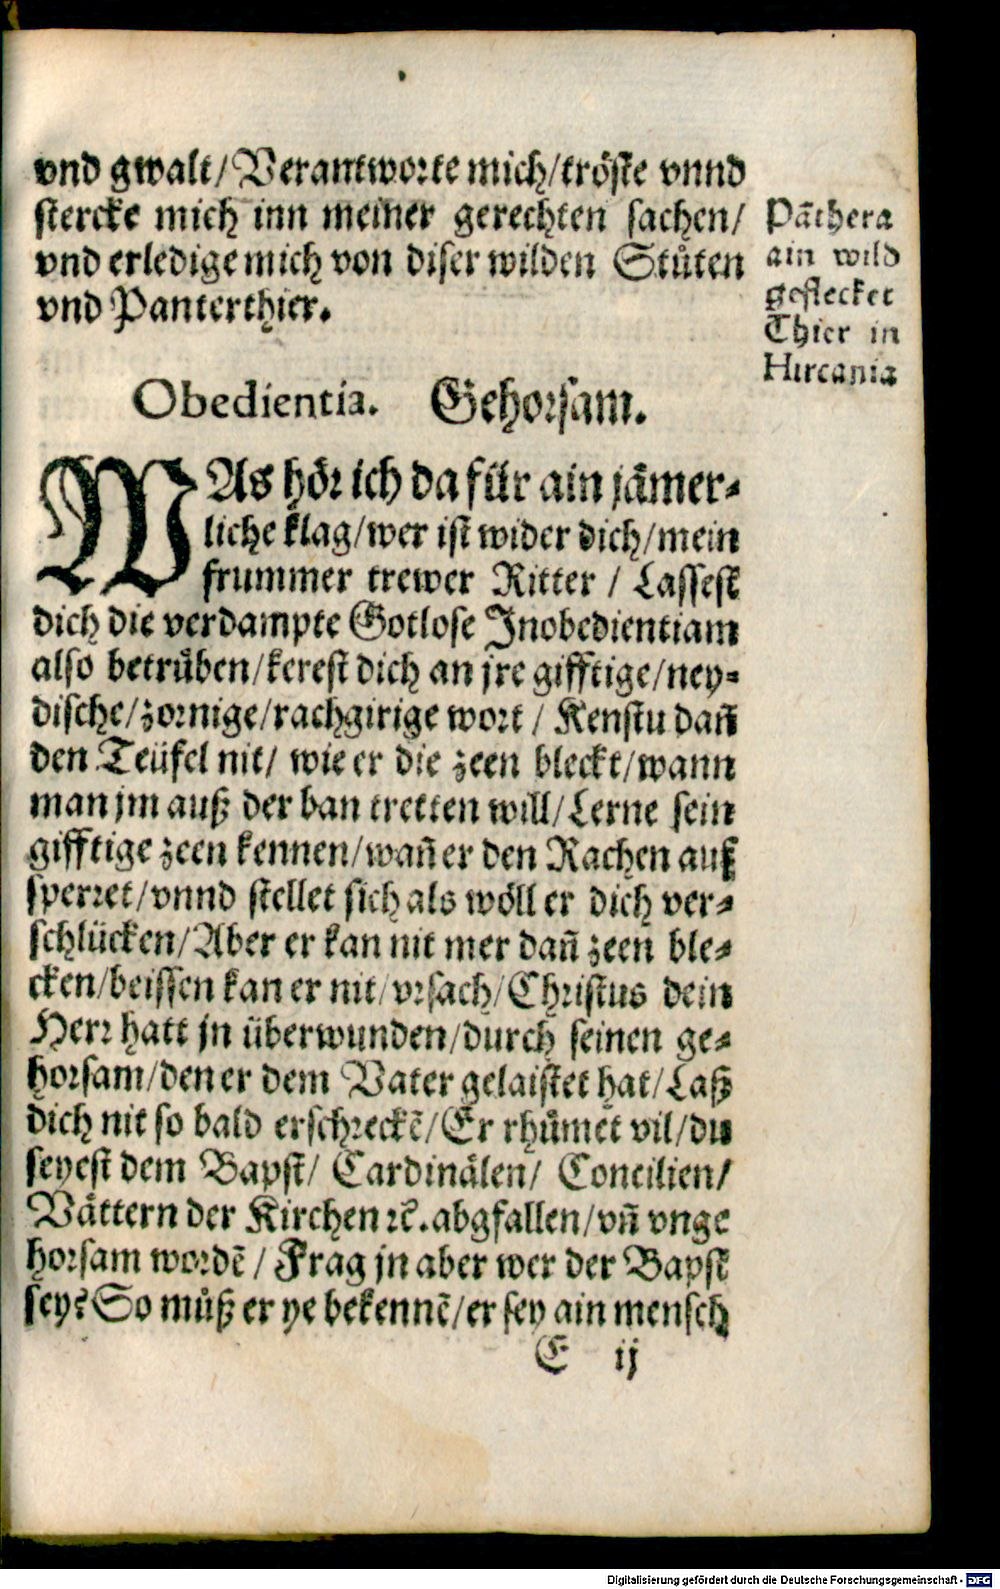 vnd gwalt/Verantworte mich/tröste vnnd
stercke mich inn meiner gerechten sachen/
vnd erledige mich von diser wilden Stůten
vnd Panterthier.
Pāthera
ain wild
geflecket
Thier in
Hircania
Obedientia. Gehorsam.
WAs hör ich da für ain jämer⸗
liche klag/wer ist wider dich/mein
frummer trewer Ritter / Lassest
dich die verdampte Gotlose Inobedientiam
also betrüben/kerest dich an jre gifftige/ney⸗
dische/zornige/rachgirige wort / Kenstu dañ
den Teüfel nit/ wie er die zeen bleckt/wann
man jm auß der ban tretten will/Lerne sein
gifftige zeen kennen/wañ er den Rachen auf
sperret/vnnd stellet sich als wöll er dich ver⸗
schlücken/Aber er kan nit mer dañ zeen ble⸗
cken/beissen kan er nit/vrsach/Christus dein
Herr hatt jn überwunden/durch seinen ge⸗
horsam/den er dem Vater gelaistet hat/Laß
dich nit so bald erschreckē/Er rhůmet vil/du
seyest dem Bapst/ Cardinälen/ Concilien/
Vättern der Kirchen ꝛc̄.abgfallen/vñ vnge
horsam wordē / Frag jn aber wer der Bapst
sey? So můß er ye bekennē/er sey ain mensch
E ij
Digitalisierung gefördert durch die Deutsche Forschungsgemeinschaft - DFG